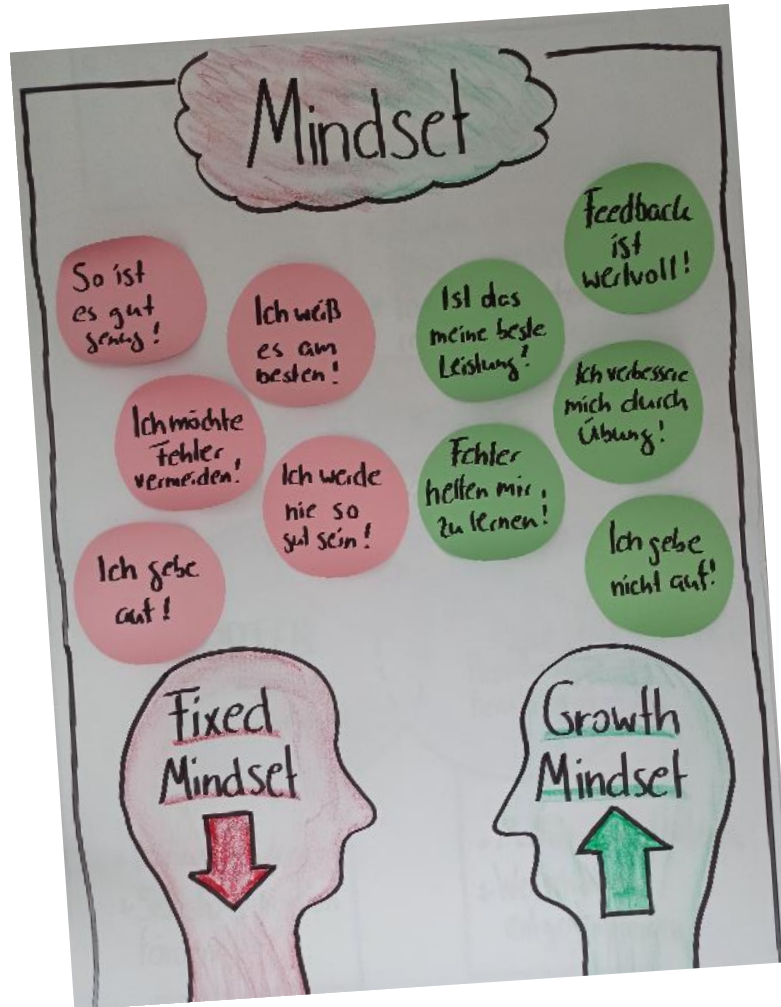 Mindset
So ist
es gut
genug!
Ich weiß
es am
besten!
Ich möchte
Fehler
vermeiden!
Ich werde
nie so
gut sein!
Ich gebe
auf!
Feedback
ist
wertvoll!
Ist das
meine beste
Leistung?
Ich verbessere
mich durch
Übung!
Fehler
helfen mir,
zu lernen!
Ich gebe
nicht auf!
Fixed
Mindset
Growth
Mindset